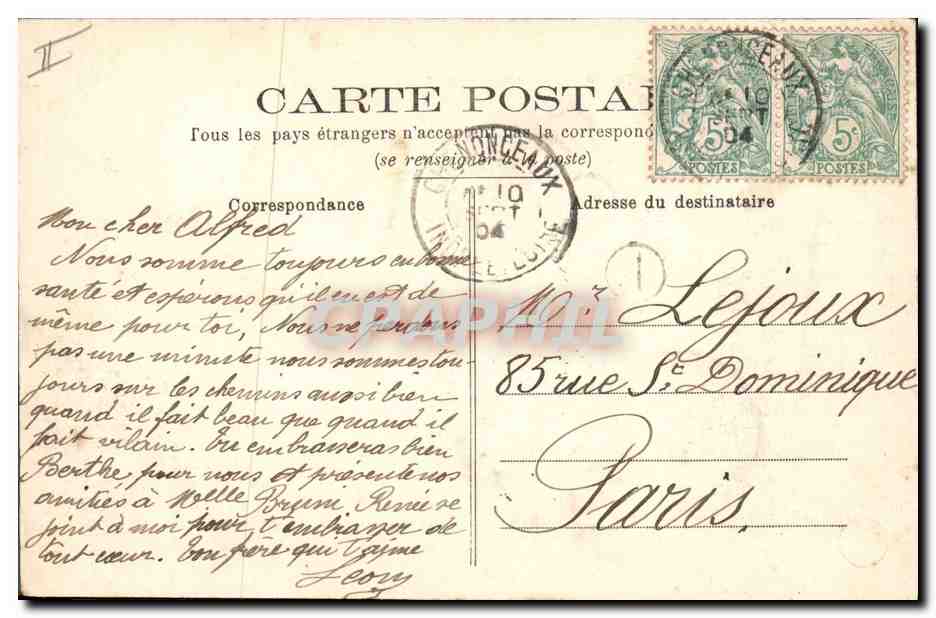 II
CARTE POSTA
Tous les pays étrangers n'acceptent pas la correspond
(se renseigner à la poste)
Correspondance
Adresse du destinataire
CHENONCEAUX
10
SEPT
04
INDRE-ET-LOIRE
CHENONCEAUX
10
SEPT
04
5c
5c
POSTES
POSTES
1
CPAPHIL
Mon cher Alfred
Nous somme toujours en bonne
santé et espérons qu'il en est de
même pour toi, Nous ne perdons
pas une minute nous sommes tou
jours sur les chemins aussi bien
quand il fait beau que quand il
fait vilain. Tu embrasseras bien
Berthe pour nous et présente nos
amitiés à Melle Brum, Renée se
joint à moi pour t'embrasser de
tout cœur. Ton frère qui t'aime
Léon
Mr Lejoux
85 rue St Dominique
Paris,